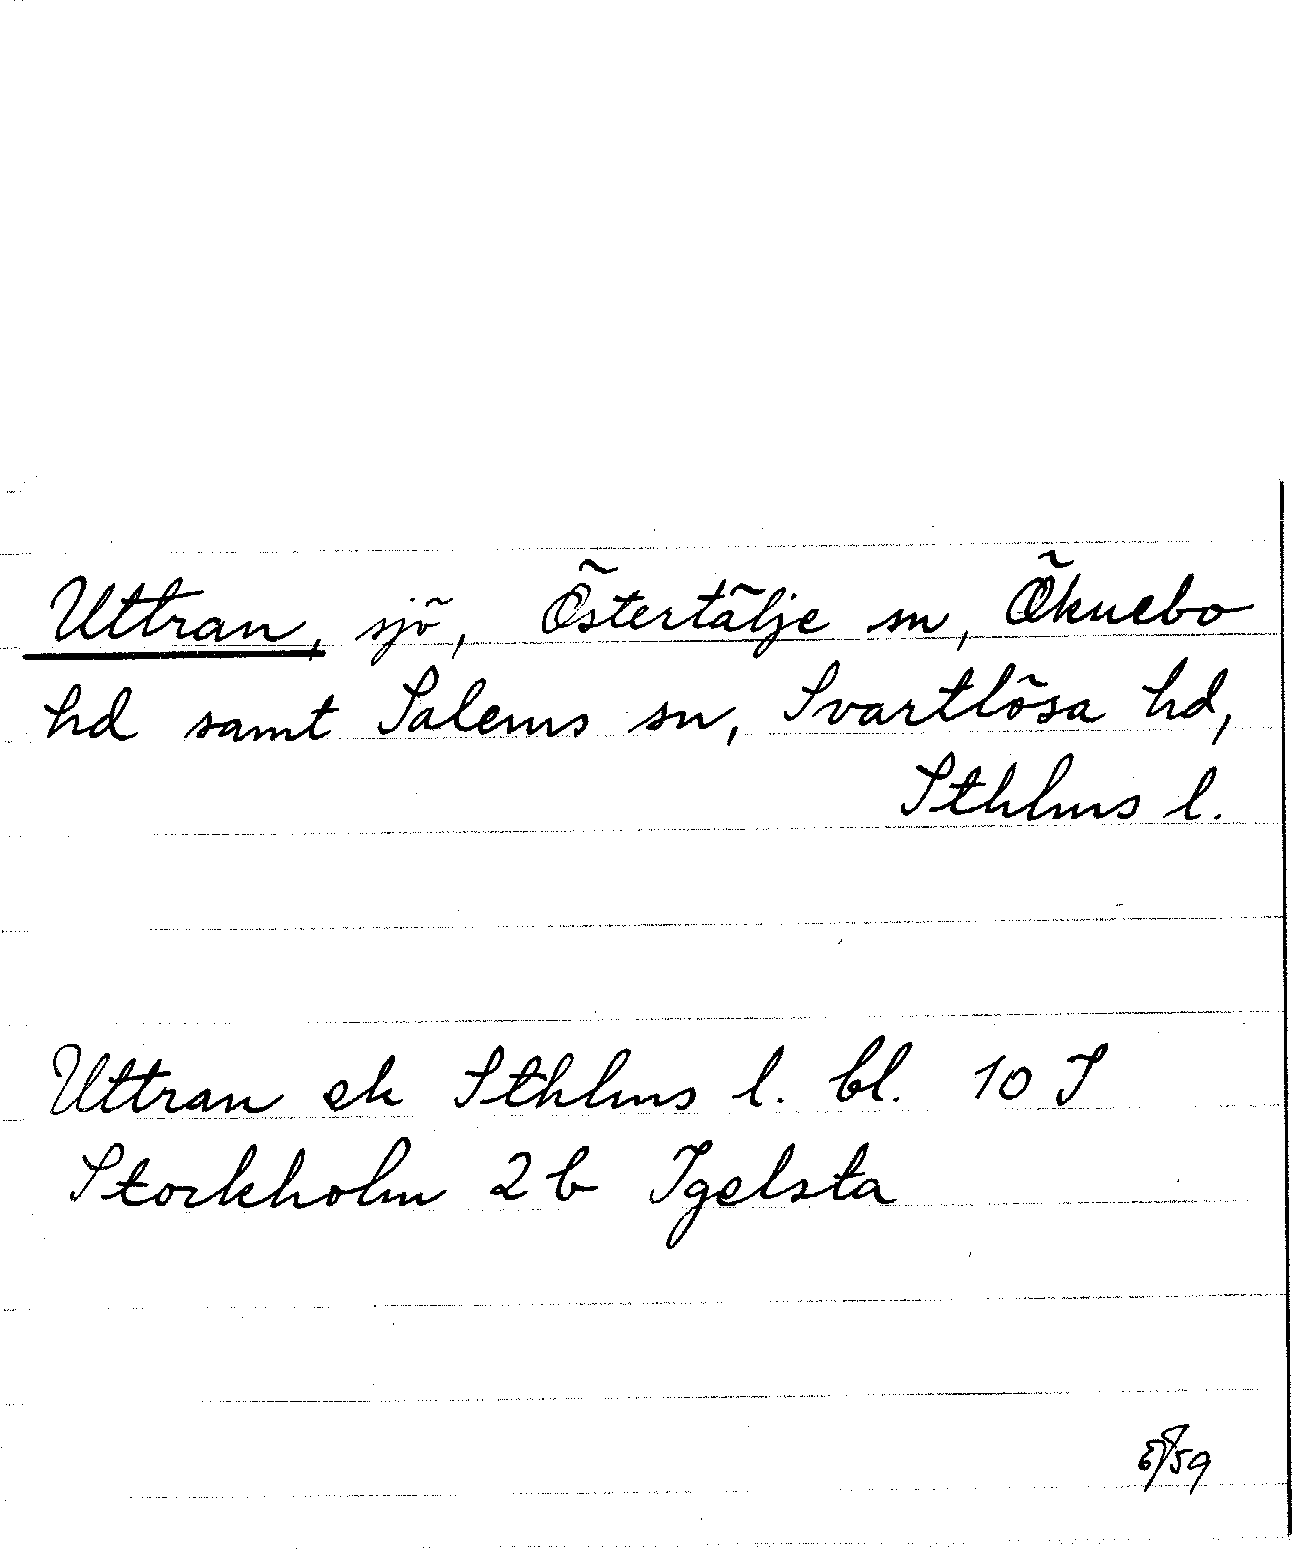 Uttran, sjö, Östertälje sn, Öknebo
hd samt Salems sn, Svartlösa hd,
Sthlms l.
Uttran ek Sthlms l. bl. 10 I
Storkholm 2 b Igelsta